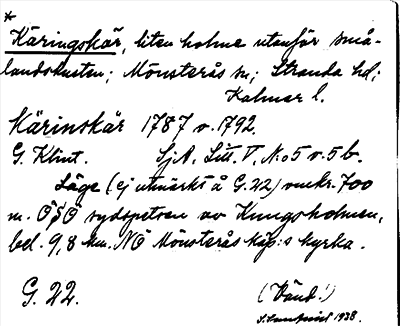 *
Käringskär, liten holme utanför små-
landskusten; Mönsterås sn; Stranda hd;
Kalmar l.
Kärinskär 1787 o. 1792.
G. Klint. SjA, Litt. V, N:o 5 o. 5 b.
Läge (ej utmärkt å G. 22) omkr. 700
m. ÖSÖ sydspetsen av Kungsholmen,
bel. 9,8 km. NÖ Mönsterås köp:s kyrka.
G. 22. (Vänd!)
1938.